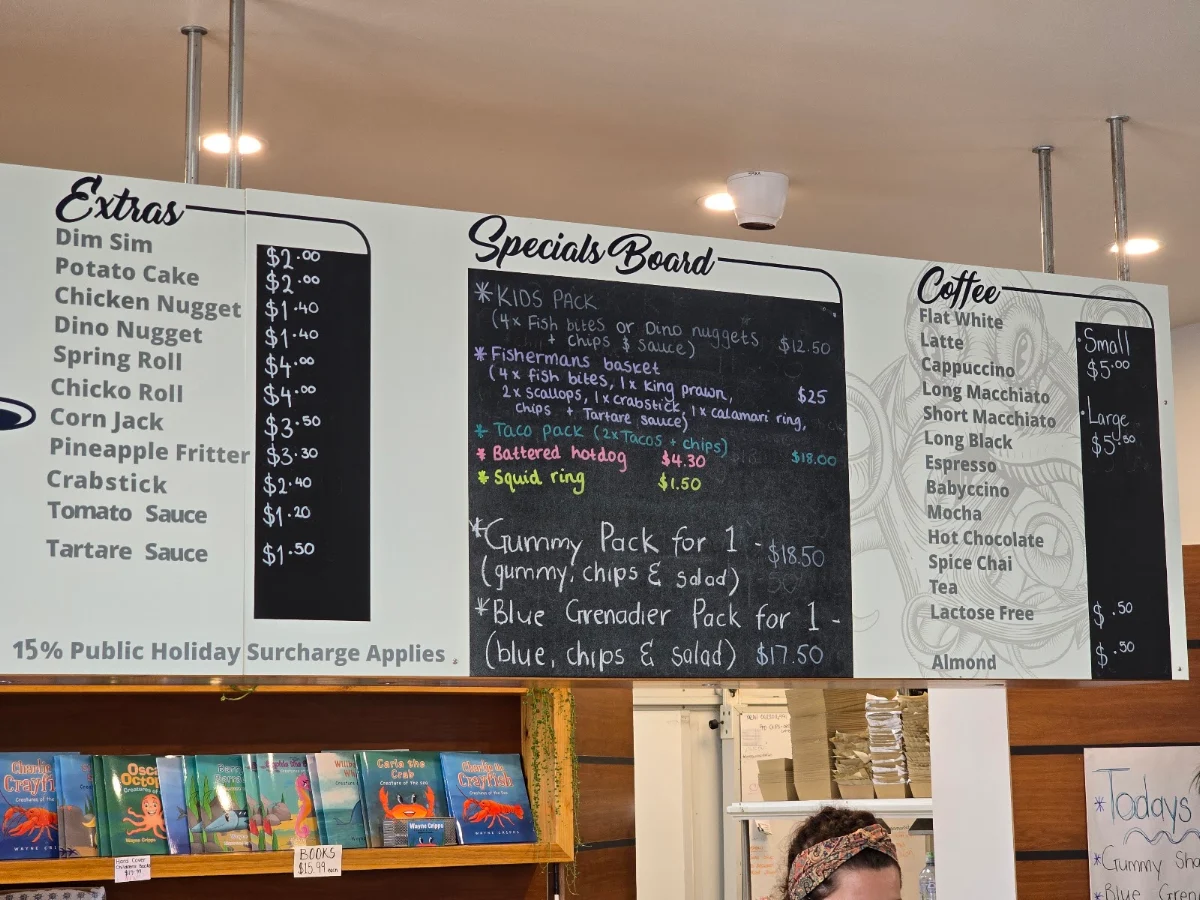 Extras
Dim Sim $2.00
Potato Cake $2.00
Chicken Nugget $1.40
Dino Nugget $1.40
Spring Roll $4.00
Chicko Roll $4.00
Corn Jack $3.50
Pineapple Fritter $3.30
Crabstick $2.40
Tomato Sauce $1.20
Tartare Sauce $1.50
15% Public Holiday Surcharge Applies
Specials Board
*KIDS PACK
(4x Fish bites or Dino nuggets
+ chips & sauce) $12.50
*Fishermans basket
(4x fish bites, 1x King prawn, $25
2x scallops, 1x crabstick, 1x calamari ring,
chips + Tartare sauce)
*Taco pack (2xTacos + chips) $18.00
*Battered hotdog $4.30
*Squid ring $1.50
*Gummy Pack for 1 - $18.50
(gummy, chips & salad)
*Blue Grenadier Pack for 1 -
(blue, chips & salad) $17.50
Coffee
Flat White
Latte
Cappuccino
Long Macchiato
Short Macchiato
Long Black
Espresso
Babyccino
Mocha
Hot Chocolate
Spice Chai
Tea
Lactose Free $.50
Almond $.50
Small
$5.00
Large
$5.50
Charlie the
Crayfish
Carla the
Crab
Creatures of the Sea
Charlie the
Crayfish
Creatures of the Sea
WAYNE GRIPPS
BOOKS
$15.99 each
Todays
*Gummy Sha
*Blue Gren